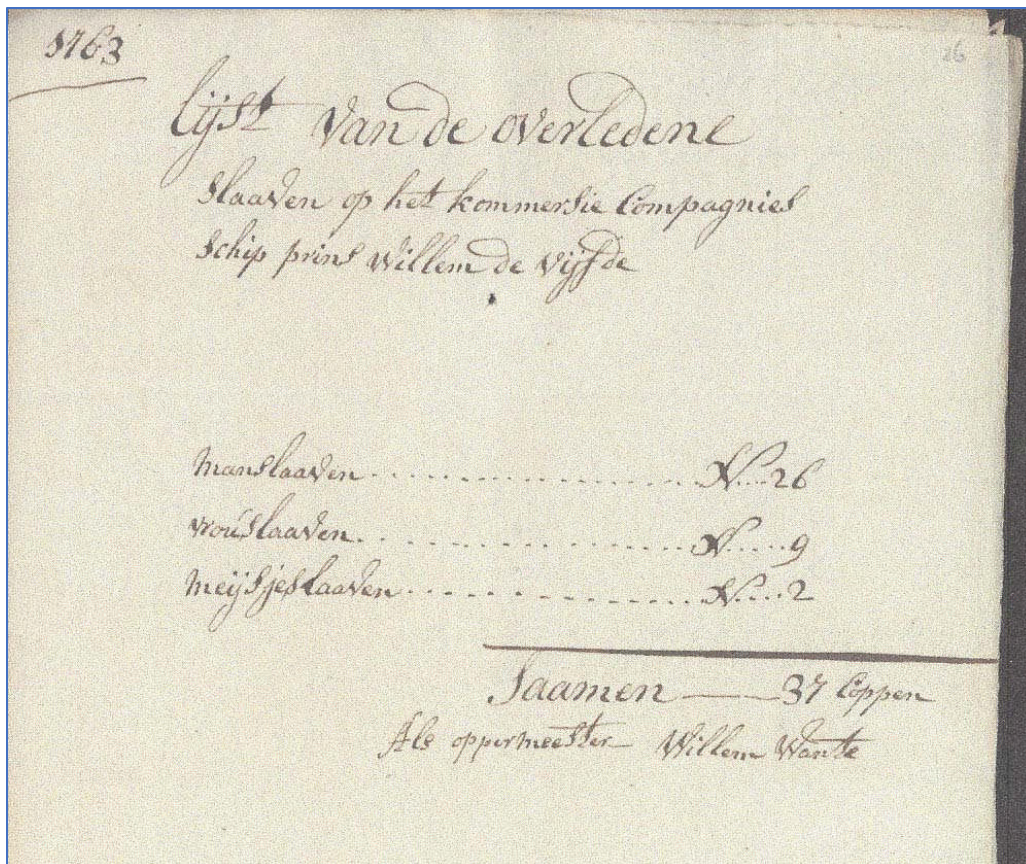 1763
26
lijst van de overledene
slaaven op het kommersie Compagnies
schip prins Willem de vijfde
manslaaven N 26
vrouslaaven N 9
meijsjeslaaven N 2
Saamen 37 Coppen
Als oppermeester Willem Wante